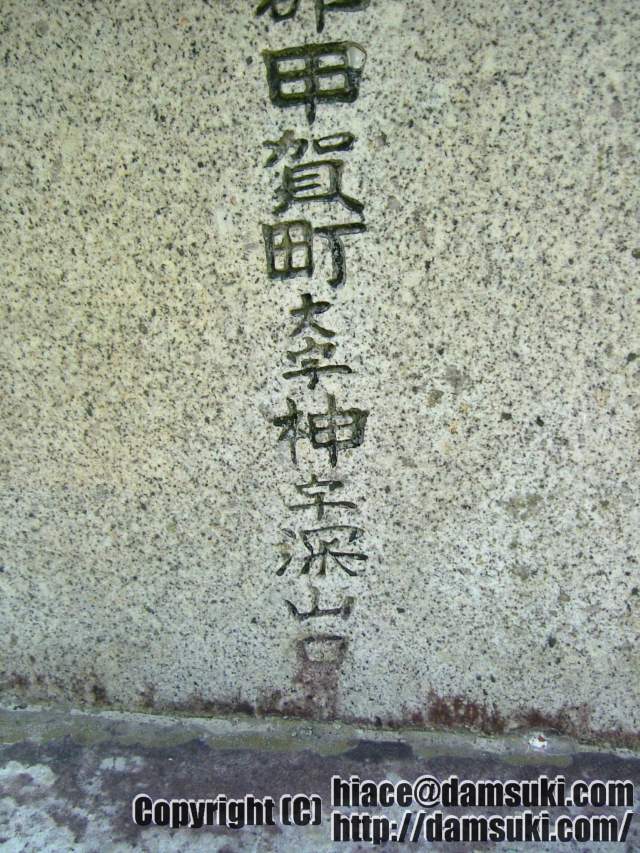 郡甲賀町大字神字深山口
Copyright (C) hiace@damsuki.com
http://damsuki.com/